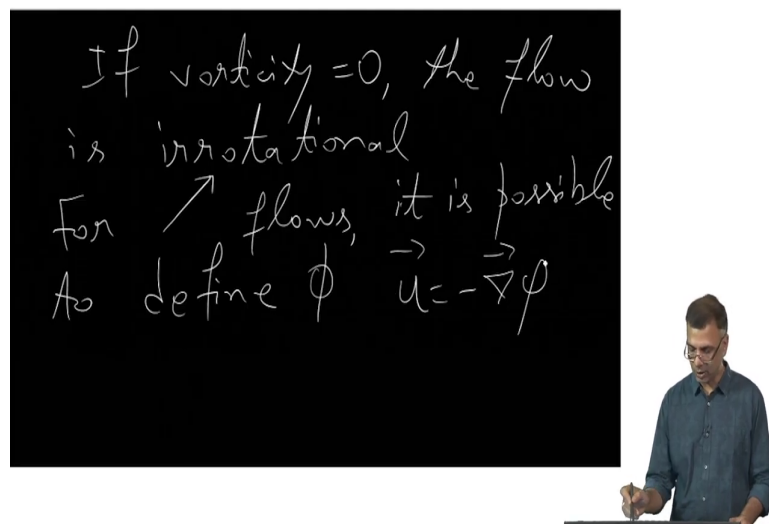 If vorticity = 0, the flow
is irrotational
For ↗ flows, it is possible
to define ϕ \vec{u} = -\vec{∇}φ